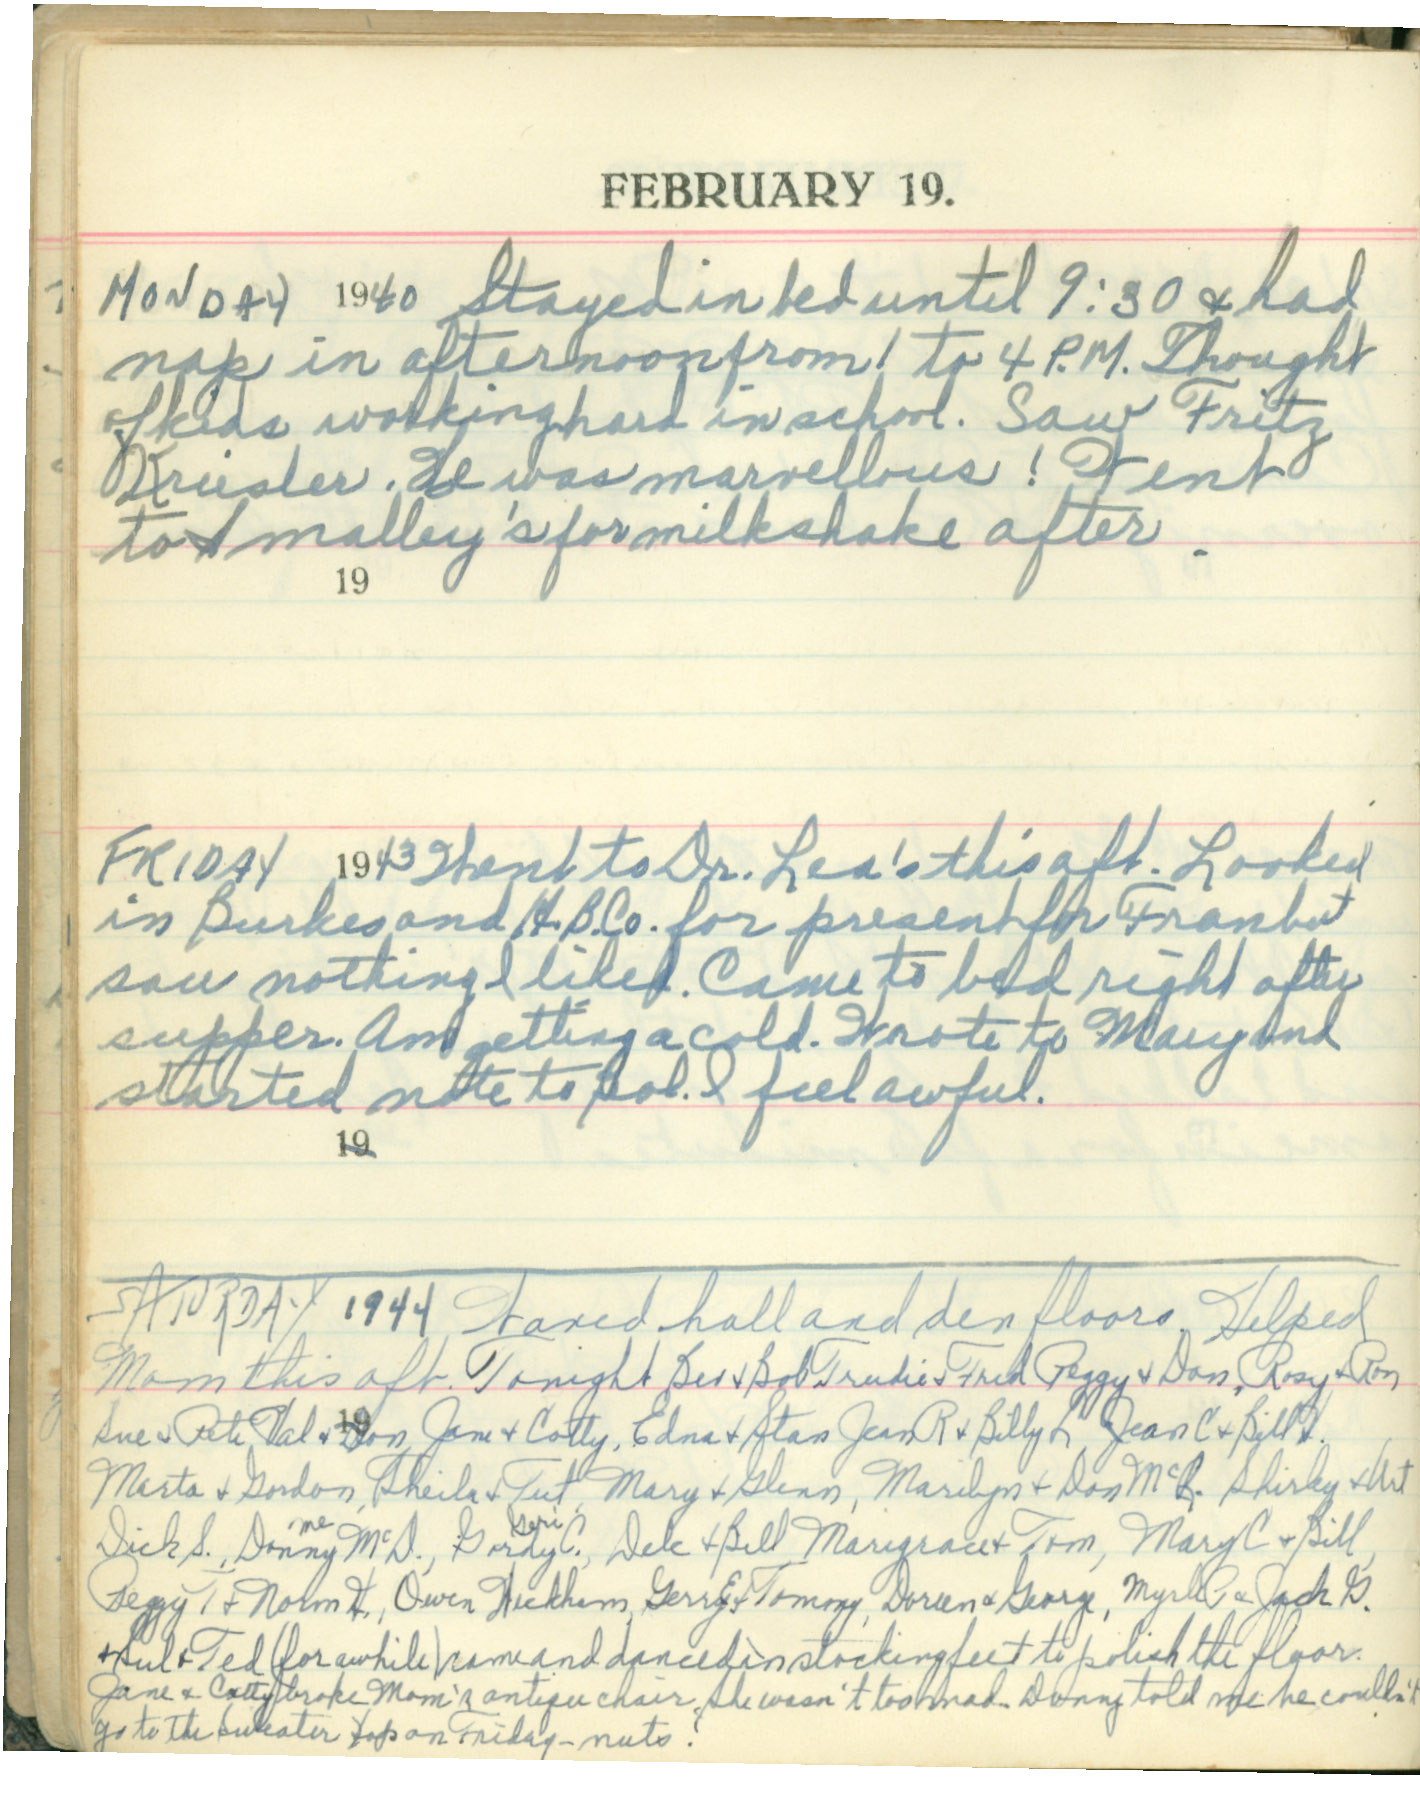 FEBRUARY 19.
MONDAY 1940 Stayed in bed until 9:30 & had
nap in afternoon from 1 to 4 P.M. Thought
of kids working hard in school. Saw Fritz
Kriesler. He was marvellous! Went
to Smalley's for milkshake after.
19
FRIDAY 1943 Went to Dr. Lea's this aft. Looked
in Burkes and H.B.Co. for present for Fran but
saw nothing I liked. Came to bed right after
supper. Am getting a cold. Wrote to Mary and
started note to Sol. I feel awful.
19
SATURDAY 1944 Waxed hall and den floors. Helped
Mom this aft. Tonight Bev & Bob Trudie & Fred Peggy & Don, Rosy & Ron
19
Sue & Pete Val & Don, Jane & Cotty, Edna & Stan Jean R & Billy L Jean C & Bill H.
Marta & Gordon, Sheila & Tut, Mary & Glenn, Marilyn & Don McR. Shirley & Art
Dick S., Donny me McD., Gordy Geri C., Dele & Bill Marigrace & Tom, Mary C & Bill,
Peggy T & Norm H., Owen Hickham, Gerry E & Tommy, Doreen & George, Myrle P & Jack G.
& Lul & Ted (for awhile) came and danced in stocking feet to polish the floor.
Jane & Cotty broke Mom's antique chair. She wasn't too mad. Donny told me he couldn't
go to the sweater hop on Friday - nuts!